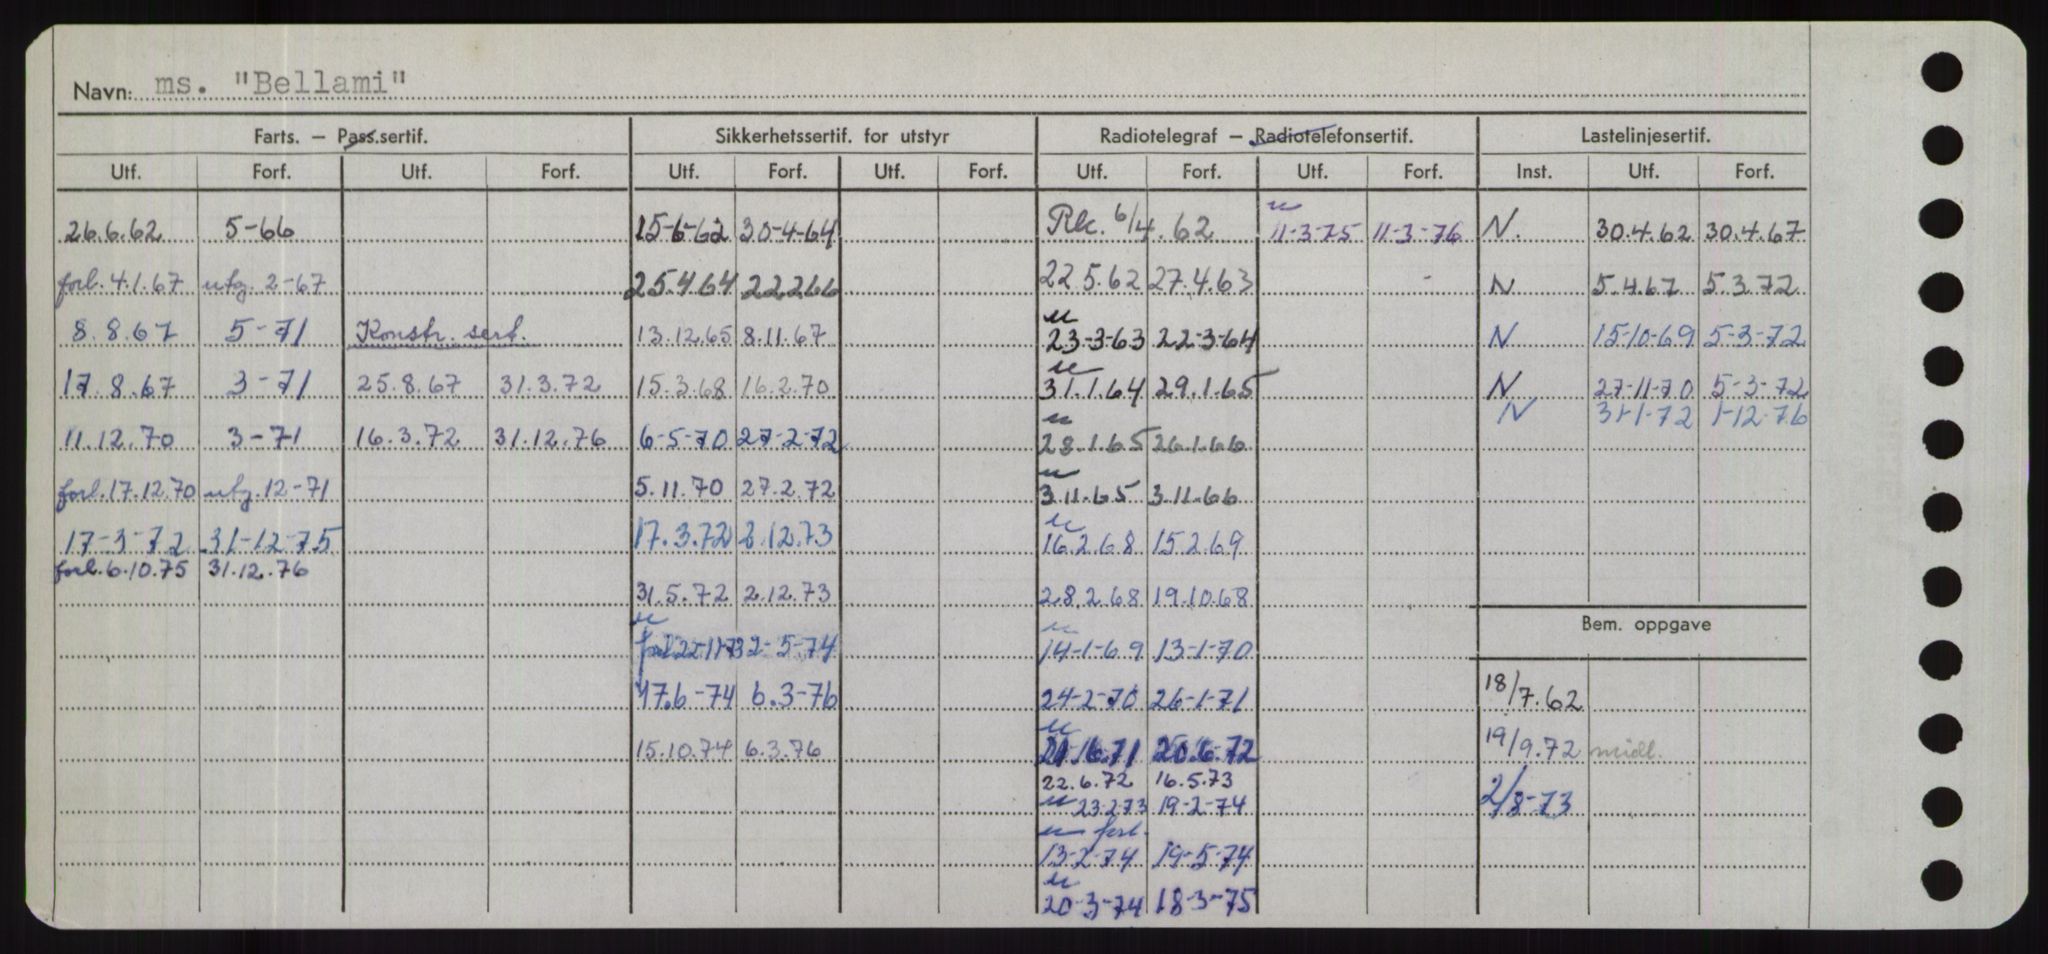 Navn: ms. "Bellami"
Farts. – Pass.sertif. Sikkerhetssertif. for utstyr Radiotelegraf – Radiotelefonsertif. Lastelinjesertif.
Utf. Forf. Utf. Forf. Utf. Forf. Utf. Forf. Utf. Forf. Utf. Forf. Inst. Utf. Forf.
26.6.62 5-66 15-6-62 30-4-64 Rk. 6/4.62 u 11-3-75 11-3-76 N. 30.4.62 30.4.67
forl. 4.1.67 utg. 2-67 25.4.64 22.2.66 22.5.62 27.4.63 N 5.4.67 5.3.72
8.8.67 5-71 Konstr. sert. 13.12.65 8.11.67 u 23-3-63 22-3-64 N 15-10-69 5-3-72
17.8.67 3-71 25.8.67 31.3.72 15.3.68 16.2.70 u 31.1.64 29.1.65 N 27-11-70 5-3-72
N 31-1-72 1-12-76
11.12.70 3-71 16.3.72 31.12.76 6-5-70 27-2-72 u 28.1.65 26.1.66
forl. 17.12.70 utg. 12-71 5.11.70 27.2.72 u 3.11.65 3.11.66
17-3-72 31-12-75 17.3.72 2.12.73 u 16.2.68 15.2.69
forl. 6.10.75 31.12.76
31.5.72 2.12.73 28.2.68 19.10.68
Bem. oppgave
u forl 22-11-73 2-5-74 u 14-1-69 13-1-70
17.6-74 6.3-76 24-2-70 26-1-71 18/7.62
15.10.74 6.3.76 u 21.6.71 20.6.72 19/9.72 midl.
22.6.72 16.5.73
u 23.2.73 19-2-74 2/8-73
u forl.
13-2-74 19-5-74
u
20-3-74 18-3-75